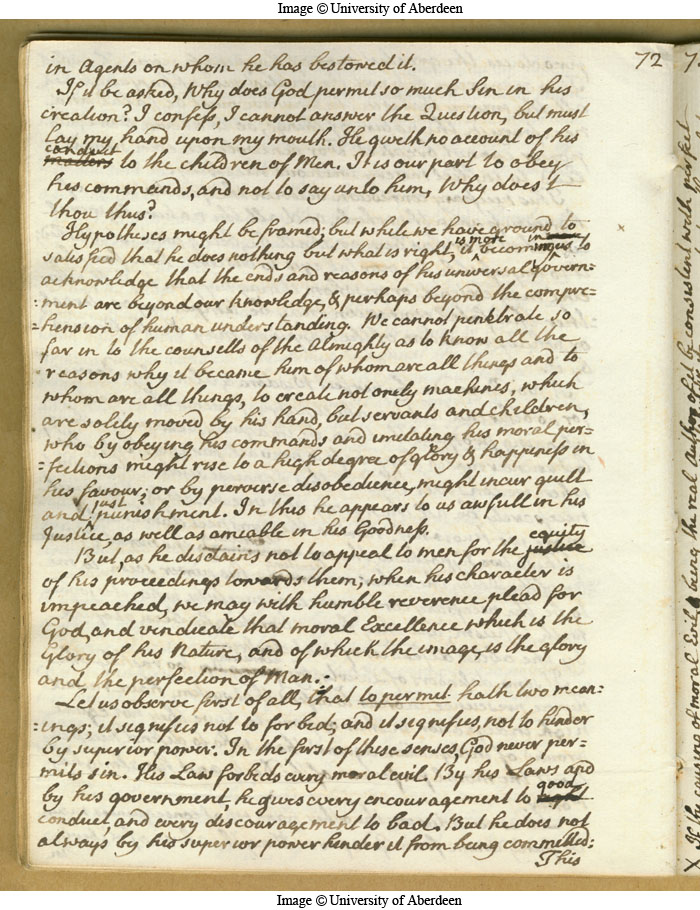 Image © University of Aberdeen
72
in Agents on whom he has bestowed it.
If it be asked, Why does God permit so much Sin in his
creation? I confess, I cannot answer the Question, but must
lay my hand upon my mouth. He giveth no account of his
conduct
matters to the children of Men. It is our part to obey
his commands, and not to say unto him, Why doest
thou thus?
Hypotheses might be framed; but while we have ground to
is more in
satisfied that he does nothing but what is right, it becoming us to
acknowledge that the ends and reasons of his universal Govern=
=ment are beyond our knowledge, & perhaps beyond the compre=
=hension of human understanding. We cannot penetrate so
far in to the counsells of the Almighty as to know all the
reasons why it became him of whom are all things and to
whom are all things, to create not only machines, which
are solely moved by his hand, but servants and children,
who by obeying his commands and imitating his moral per=
=fections might rise to a high degree of glory & happiness in
his favour; or by perverse disobedience, might incur guilt
just
and punishment. In this he appears to us awfull in his
Justice, as well as amiable in his Goodness.
equity
But, as he disdains not to appeal to men for the justice
of his proceedings towards them; when his character is
impeached, we may with humble reverence plead for
God, and vindicate that moral Excellence which is the
Glory of his Nature, and of which the image, is the glory
and the perfection of Man.
Let us observe first of all, that to permit hath two mean=
=ings; it signifies not to forbid; and it signifies, not to hinder
by superior power. In the first of these senses, God never per=
mits sin. His Law forbids every moral evil. By his Laws and
good
by his government, he gives every encouragement to right
conduct, and every discouragement to bad. But he does not
always by his superior power hinder it from being committed:
This
being the real author of it be consistent with
Image © University of Aberdeen